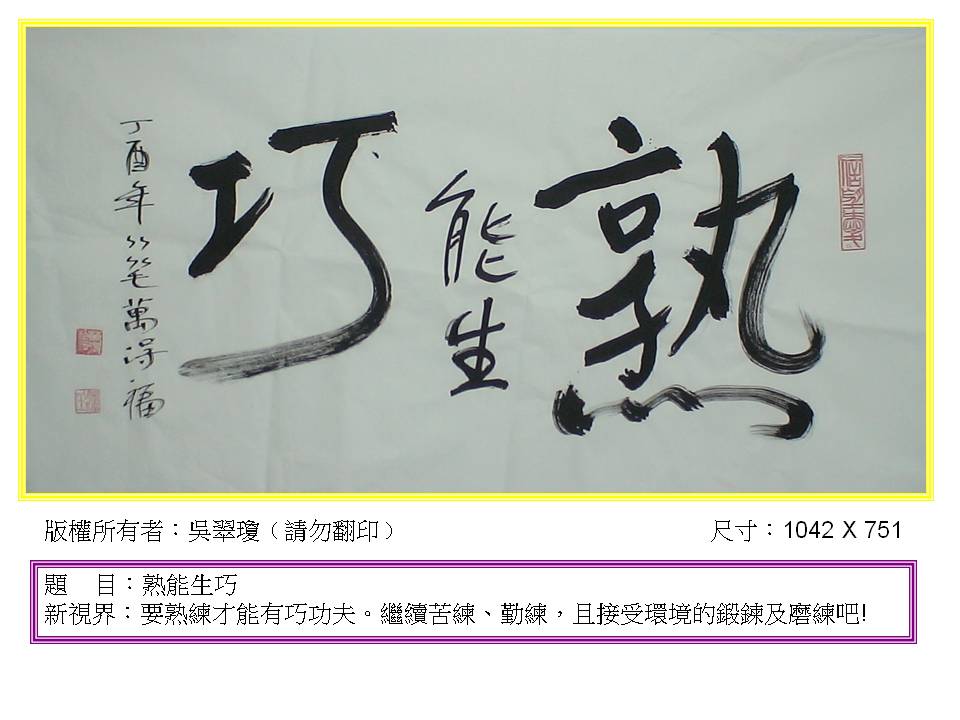 熟能生巧
丁酉年
萬得福
版權所有者：吳翠瓊（請勿翻印）
尺寸：1042 X 751
題　目：熟能生巧
新視界：要熟練才能有巧功夫。繼續苦練、勤練，且接受環境的鍛鍊及磨練吧!